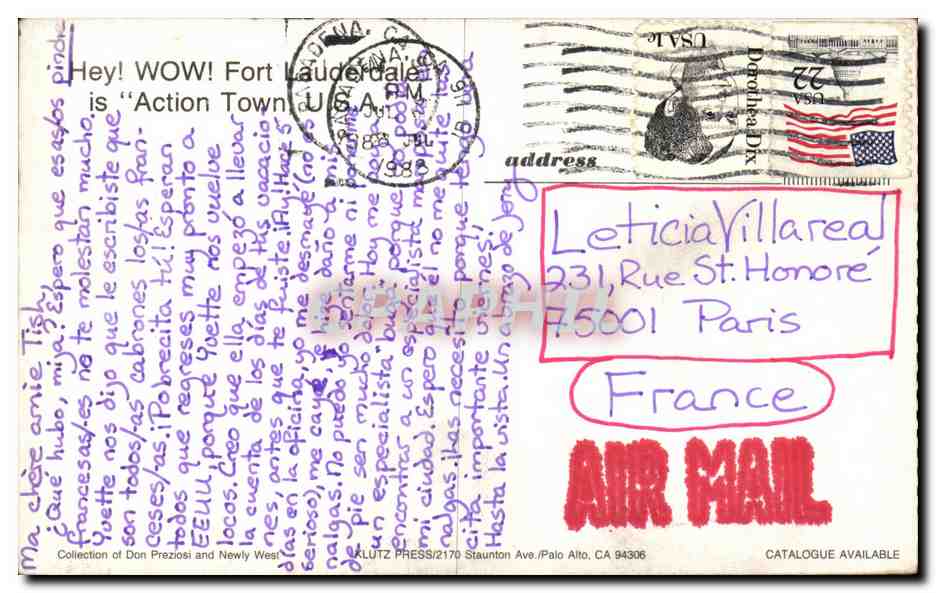 Hey! WOW! Fort Lauderdale
is "Action Town, U.S.A."
Ma chère amie Tish,
¿Qué hubo, mija? Espero que esas/os pinche
francesas/-es no te molestan mucho.
Yvette nos dijo que le escribiste que
son todos/-as cabrones los/as fran-
ceses/as. ¡Pobrecita tú! Esperan
todos que regreses muy pronto a
EEUU porque Yvette nos vuelve
locos. Creo que ella empezó a llevar
la cuenta de los días de tus vacacio-
nes, antes que te fuiste. ¡Ay! Hace
días en la oficina, yo me desmayé (no es
serioso), me cayé, y le daño a mis
nalgas. No puedo yo sentarme ni
de pie sin mucho dolor. Hoy me
un especialista porque podía
encontrar a un especialista más
mi ciudad. Espero que él no me quite las
nalgas. Las necesito porque tengo una
cita importante viernes.
Hasta la vista. Un abrazo de Jerry
PASADENA, CA
PM
JUL
1988
address
USA 1c
Dorothea Dix
USA
22
Leticia Villareal
231, Rue St. Honoré
75001 Paris
France
AIR MAIL
Collection of Don Preziosi and Newly West
KLUTZ PRESS/2170 Staunton Ave./Palo Alto, CA 94306
CATALOGUE AVAILABLE